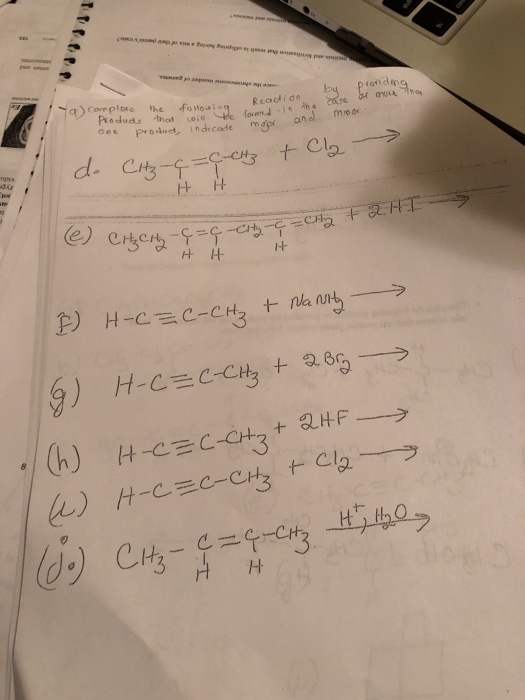 a) Complete the following Reaction by Providing
Products that will be formed in the case of more than
one product, indicate major and minor
d. CH3-C=C-CH3 + Cl2 →
H H
(e) CH3CH2-C=C-CH2-C=CH2 + 2HI →
H H H
f) H-C≡C-CH3 + NaNH2 →
g) H-C≡C-CH3 + 2Br2 →
(h) H-C≡C-CH3 + 2HF →
(i) H-C≡C-CH3 + Cl2 →
(j.) CH3-C=C-CH3 H+, H2O →
H H